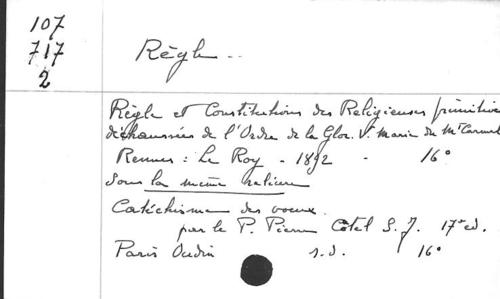 107
717
2
Règle..
Règle et Constitutions des Religieuses primitives
déchaussées de l'Ordre de la Glor. V. Marie du Mt Carmel
Rennes : Le Roy - 1892 - 16°
Sous la même reliure
Catéchisme des voeux.
par le P. Pierre Cotel S. J. 17e ed.
Paris Oudin s.d. 16°